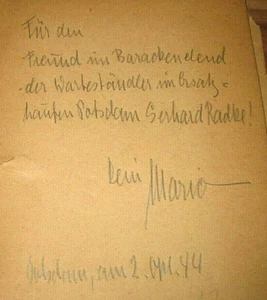 Für den
Freund im Barackenelend
der Warteständler im Ersatz-
haufen Potsdam Gerhard Radke!
Dein Mario
Potsdam, am 2. Okt. 44